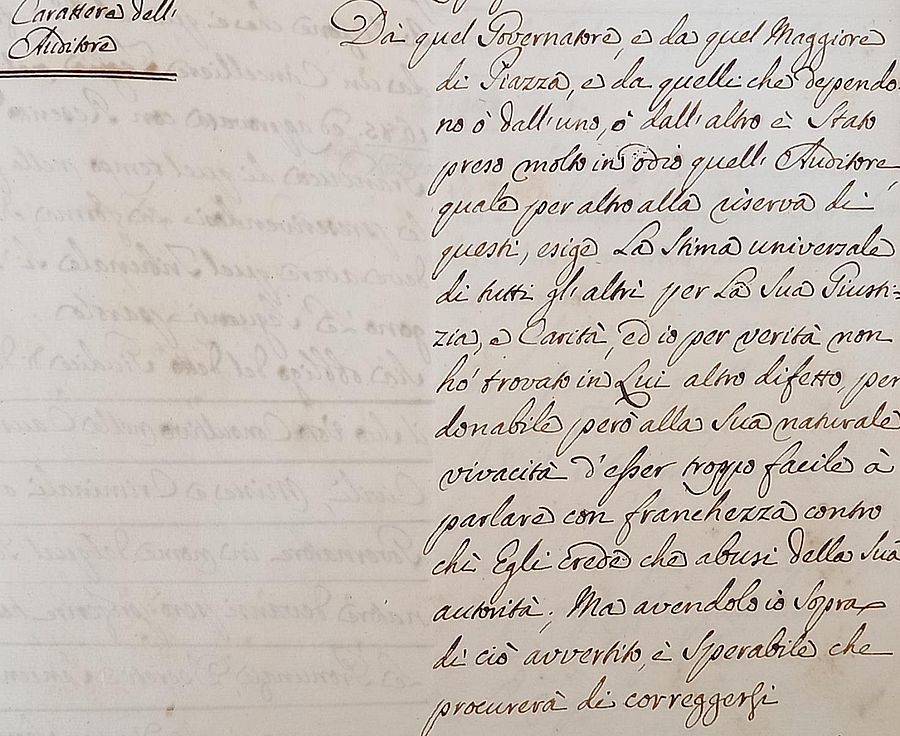 Carattere dell'
Auditore
Da quel Governatore, e da quel Maggiore
di Piazza, e da quelli che dependo-
no ò dall'uno, ò dall'altro è Stato
preso molto in odio quell' Auditore,
quale per altro alla riserva di
questi, esige La Stima universale
di tutti gl'altri per La Sua Giusti=
zia, e Carità, ed io per verità non
hò trovato in Lui altro difetto, per
donabile però alla Sua naturale
vivacità d'esser troppo facile à
parlare con franchezza contro
chi Egli crede che abusi della Sua
autorità; Ma avendolo io Sopra
di ciò avvertito, è Sperabile che
procurerà di correggersi